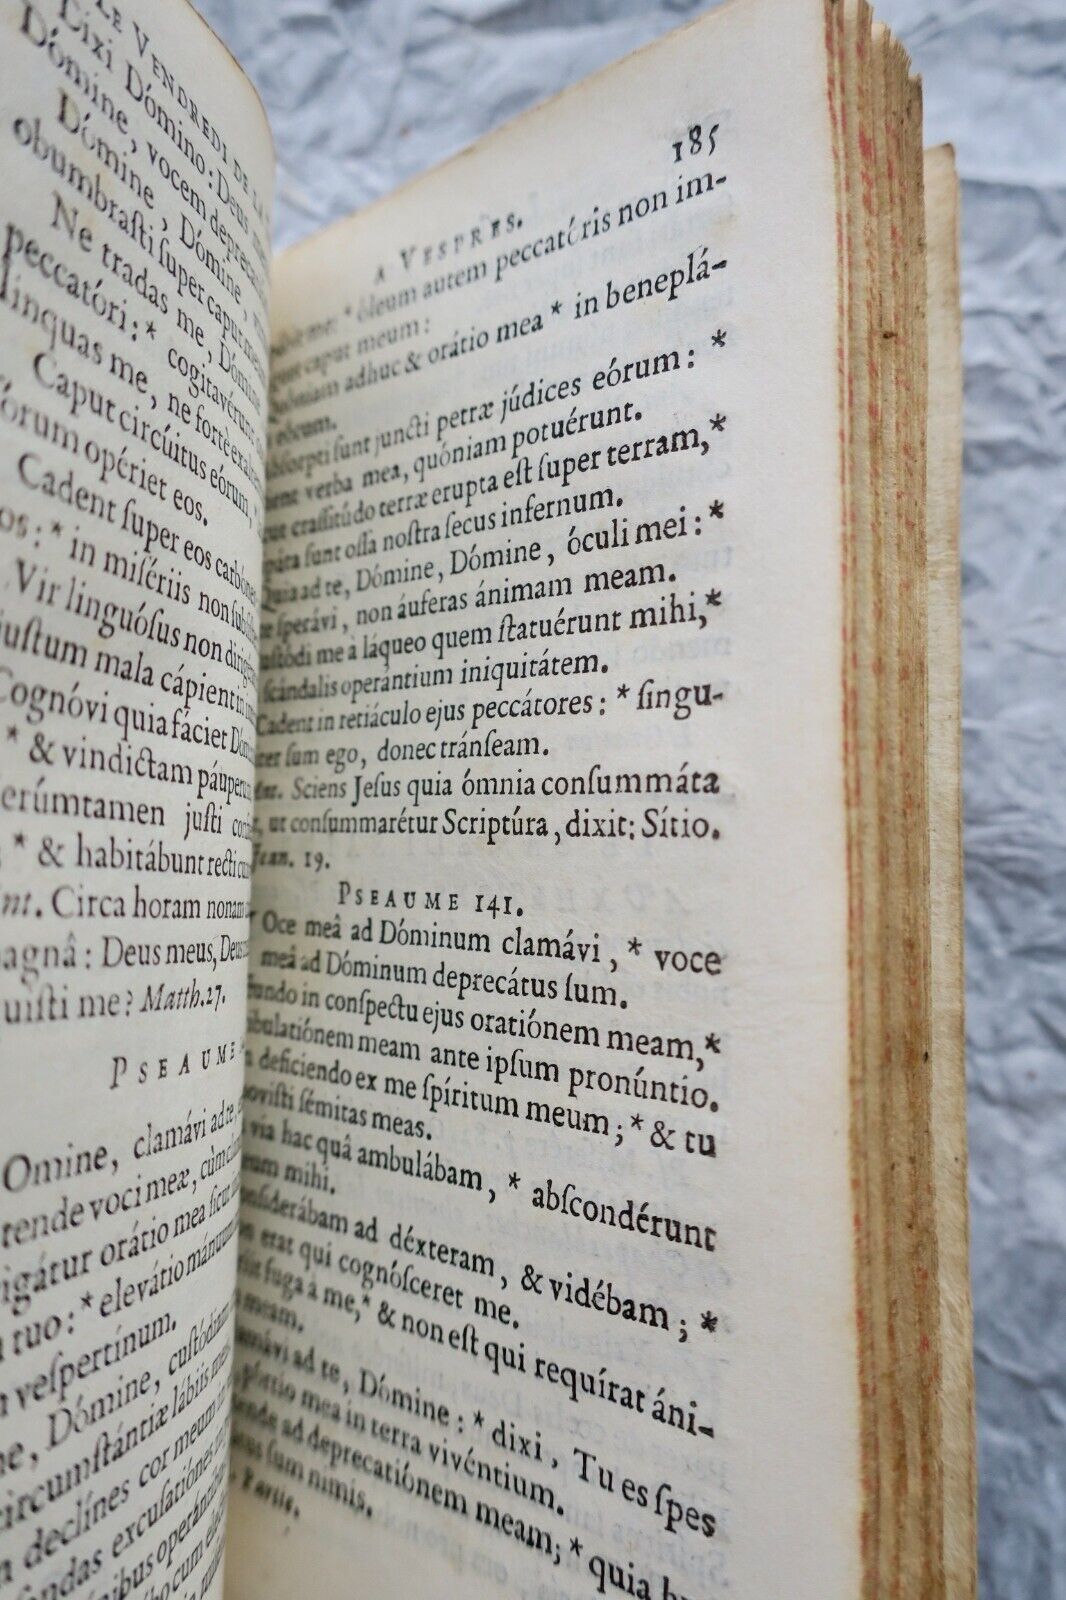 LE VENDREDI DE LA
Dixi Dómino: Deus
Dómine, vocem depreca
Dómine, Dómine,
obumbraſti ſuper caput meum
Ne tradas me, Dómine
peccatóri: * cogitavérunt
linquas me, ne fortè exal
Caput circúitus eórum, *
órum opériet eos.
Cadent ſuper eos carbónes
os: * in miſériis non ſubſiſ
Vir linguóſus non dirigé
uſtum mala cápient in
Cognóvi quia fáciet Dómi
* & vindictam páuperum
erúmtamen juſti confi
* & habitábunt recti cum
nt. Circa horam nonam
agnâ: Deus meus, Deus
uiſti me? Matth. 27.
PSEAUME
Omine, clamávi ad te,
tende voci meæ, cùm clam
igátur orátio mea ſicut
tuo: * elevátio mánuum
veſpertínum.
ne, Dómine, cuſtódiam
circumſtántiæ lábiis meis
declínes cor meum in
ſandas excuſatiónes in
nibus operántibus
cum elec
185
A VESPRES.
me: * óleum autem peccatóris non im-
caput meum:
Quóniam adhuc & orátio mea * in beneplá-
eórum.
Abſorpti ſunt juncti petræ júdices eórum: *
ent verba mea, quóniam potuérunt.
cut craſſitúdo terræ erupta eſt ſuper terram, *
pata ſunt oſſa noſtra ſecus infernum.
Quia ad te, Dómine, Dómine, óculi mei: *
te ſperávi, non áuferas ánimam meam.
uſtódi me à láqueo quem ſtatuérunt mihi, *
ſcándalis operántium iniquitátem.
Cadent in retiáculo ejus peccatóres: * ſingu-
ter ſum ego, donec tránſeam.
Ant. Sciens Jeſus quia ómnia conſummáta
t, ut conſummarétur Scriptúra, dixit: Sítio.
Jean. 19.
PSEAUME 141.
Oce meâ ad Dóminum clamávi, * voce
meâ ad Dóminum deprecátus ſum.
fundo in conſpectu ejus oratiónem meam, *
ibulatiónem meam ante ipſum pronúntio.
n deficiendo ex me ſpíritum meum; * & tu
noviſti ſémitas meas.
via hac quâ ambulábam, * abſcondérunt
eum mihi.
onſiderábam ad déxteram, & vidébam; *
on erat qui cognóſceret me.
riit fuga à me, * & non eſt qui requírat áni-
meam.
amávi ad te, Dómine: * dixi, Tu es ſpes
pórtio mea in terra vivéntium.
tende ad deprecatiónem meam; * quia hu-
tus ſum nimis.
Partie.